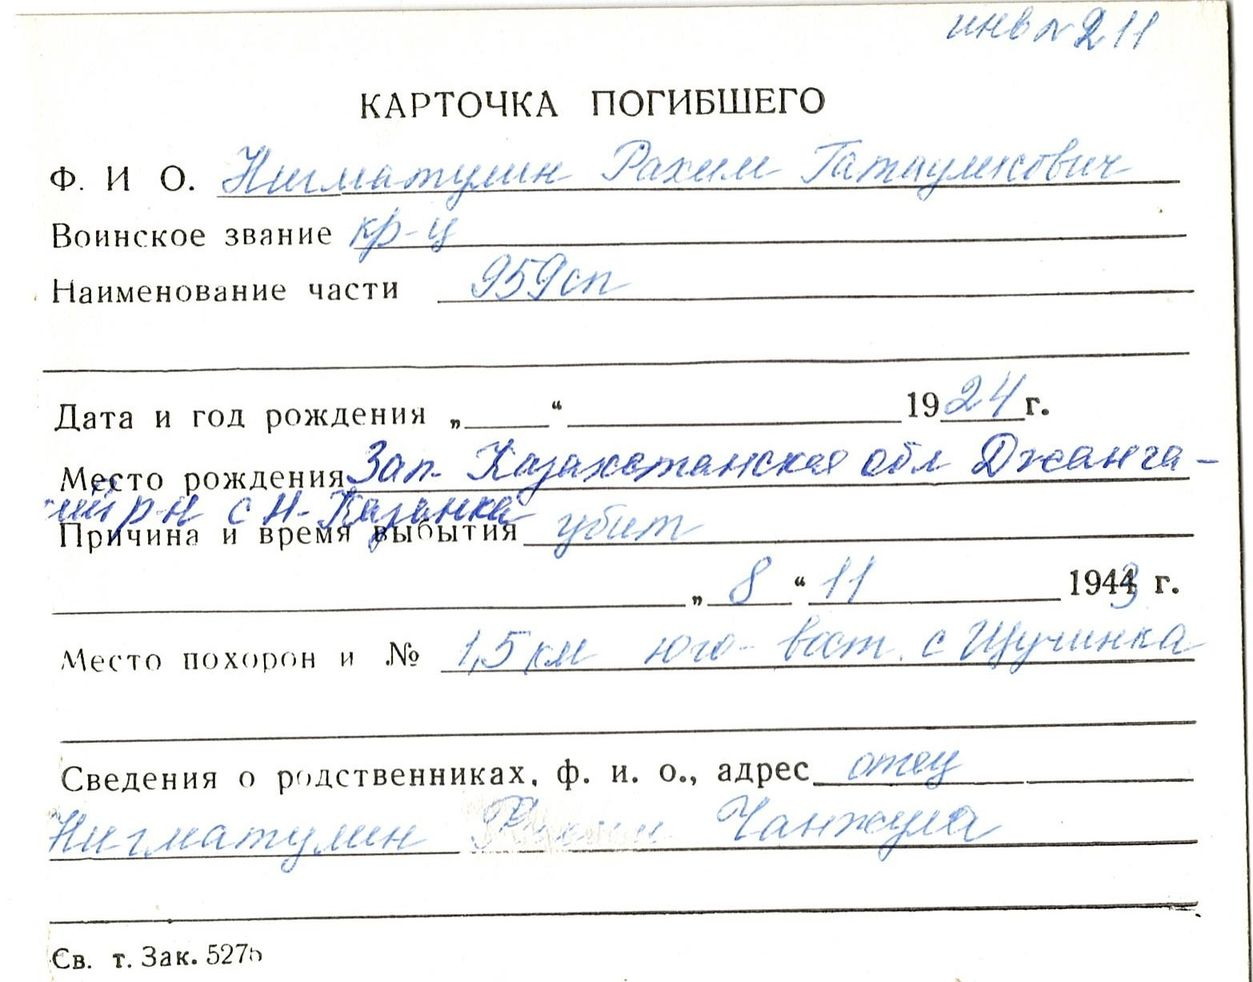 инв № 211
КАРТОЧКА ПОГИБШЕГО
Ф. И О. Нигматулин Рахим Гатаулиович
Воинское звание кр-ц
Наименование части 959 сп
Дата и год рождения „ “ 1924 г.
Место рождения Зап. Казахстанская обл Джанга-
р-н с Н-Казанка
Причина и время выбытия убит
„ 8 “ 11 1943 г.
Место похорон и № 1,5 км юго-вост. с Щучинка
Сведения о родственниках, ф. и. о., адрес отец
Нигматулин Чанжула
Св. т. Зак. 5275